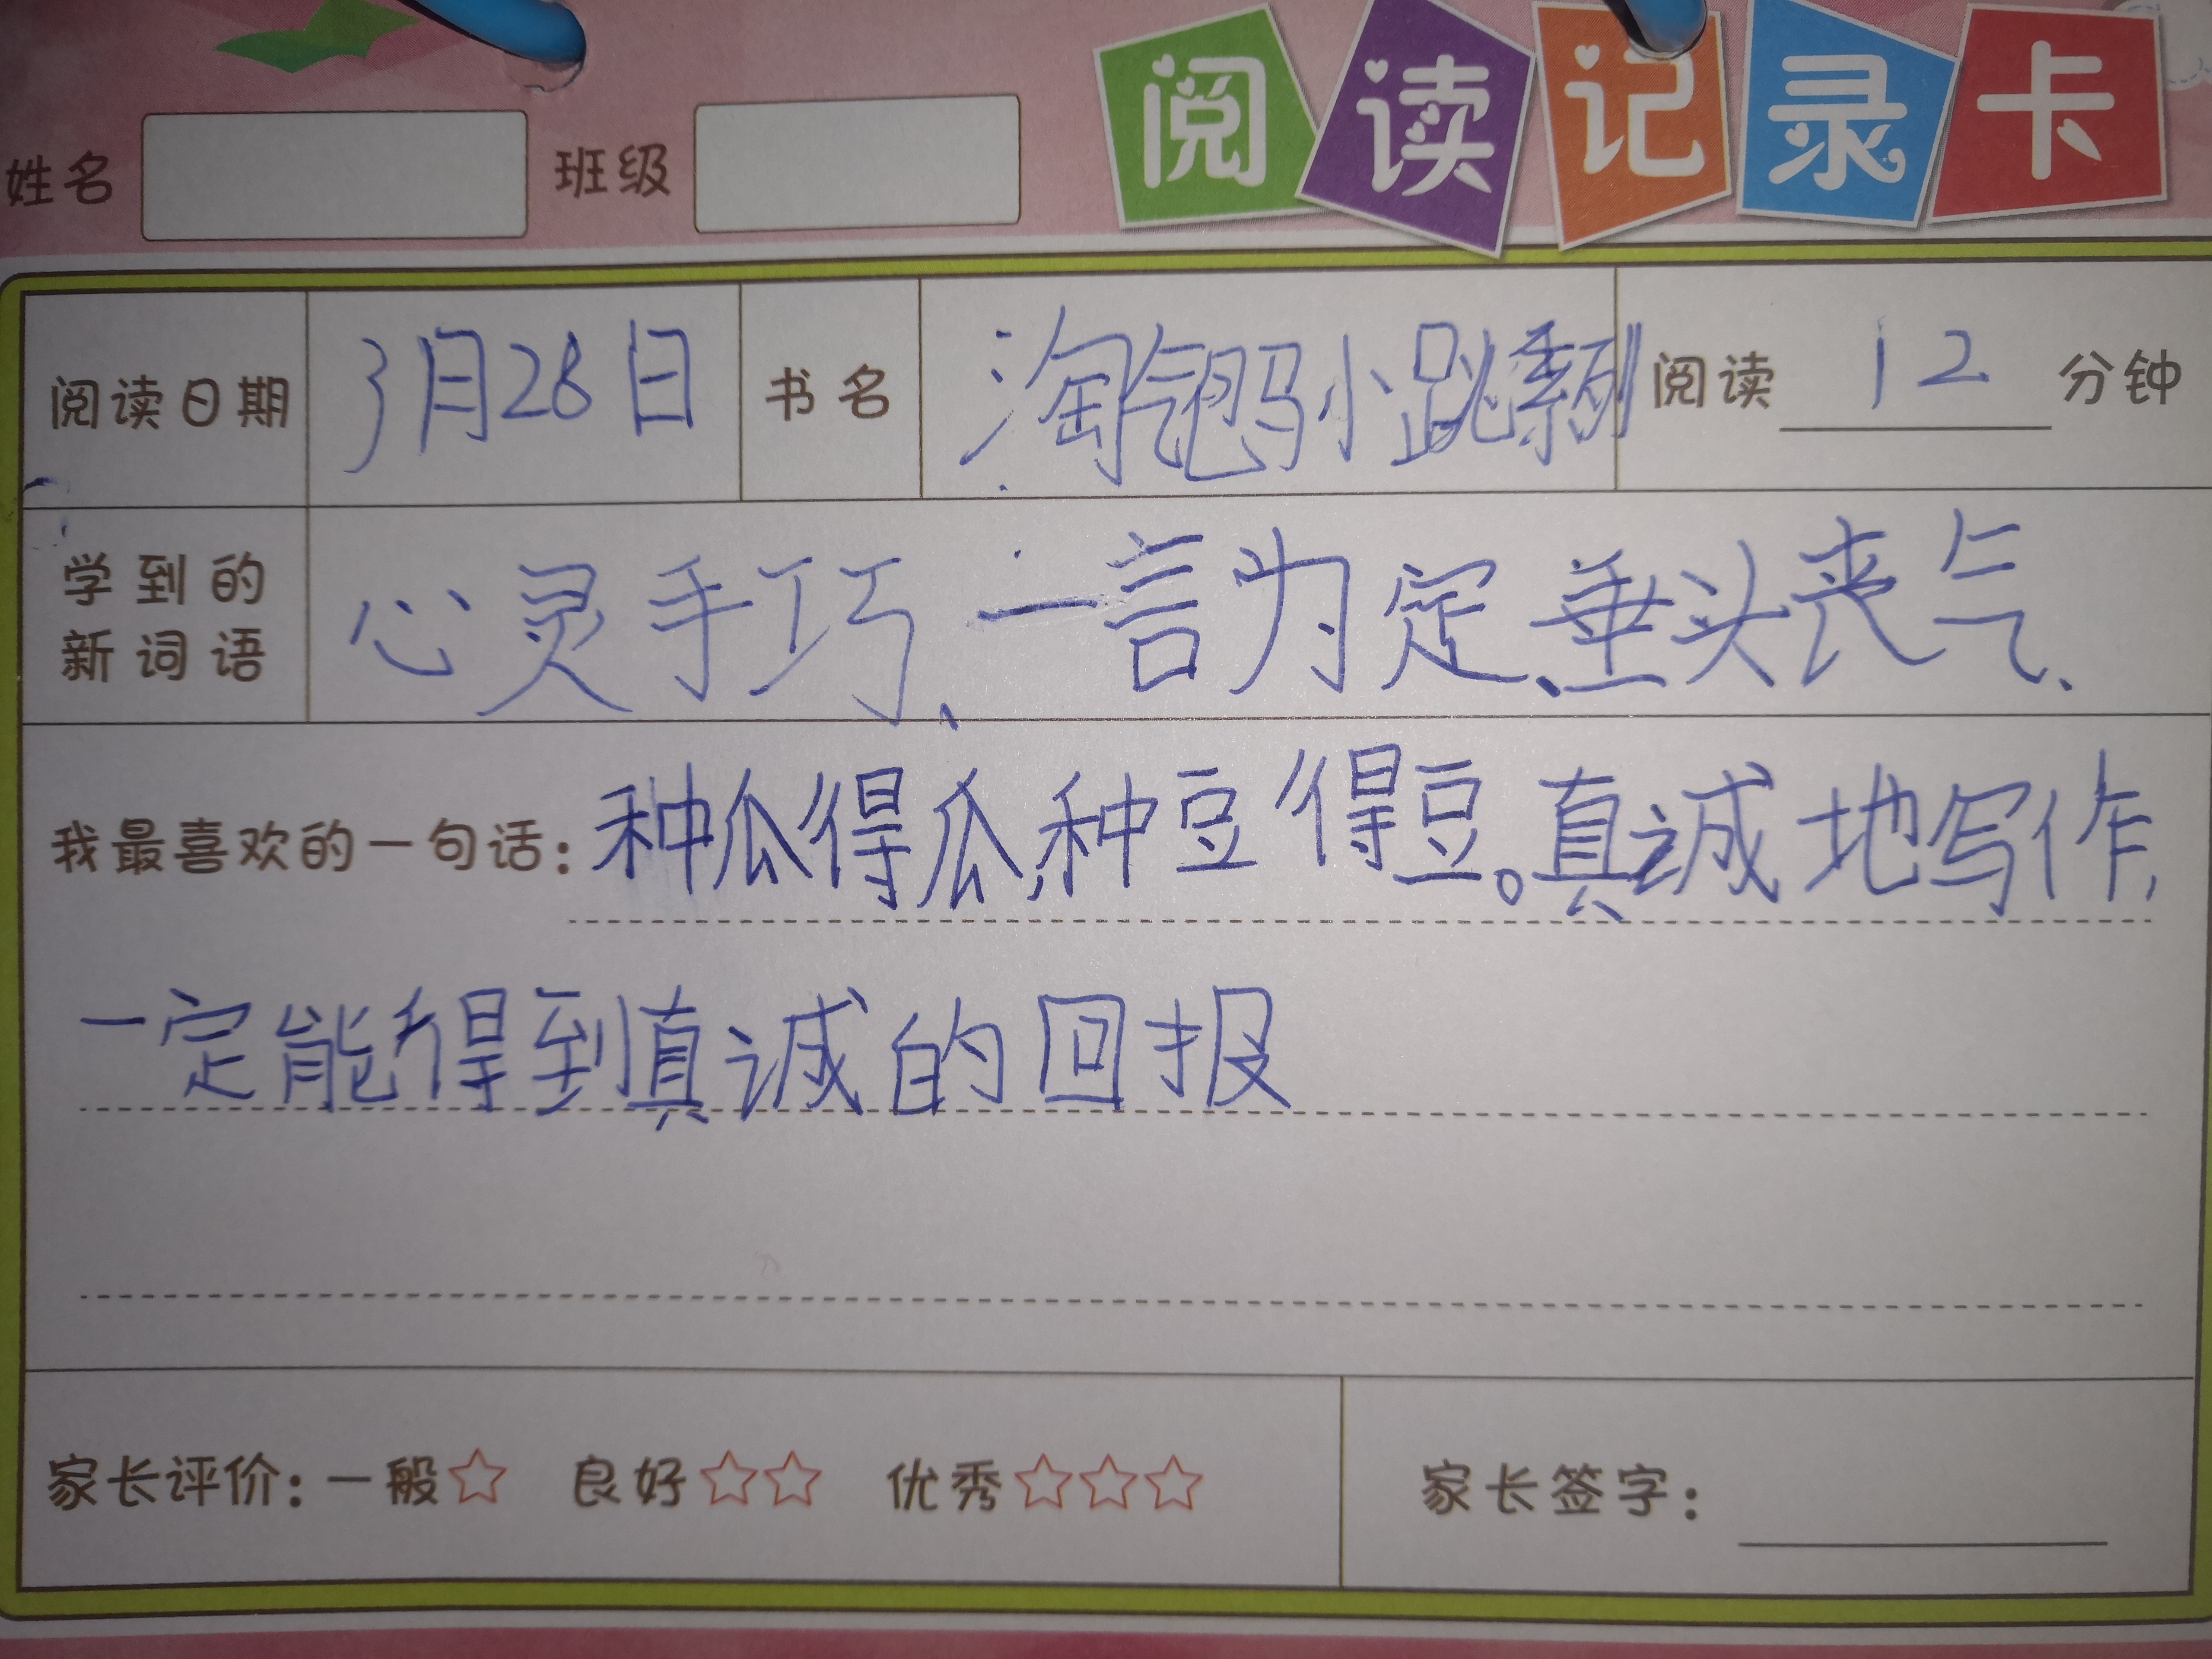 阅读记录卡
姓名 班级
阅读日期 3月28日 书名 淘气包马小跳系列 阅读 12 分钟
学到的
新词语
心灵手巧、一言为定、垂头丧气、
我最喜欢的一句话：种瓜得瓜，种豆得豆。真诚地写作，
一定能得到真诚的回报
家长评价：一般☆ 良好☆☆ 优秀☆☆☆ 家长签字：